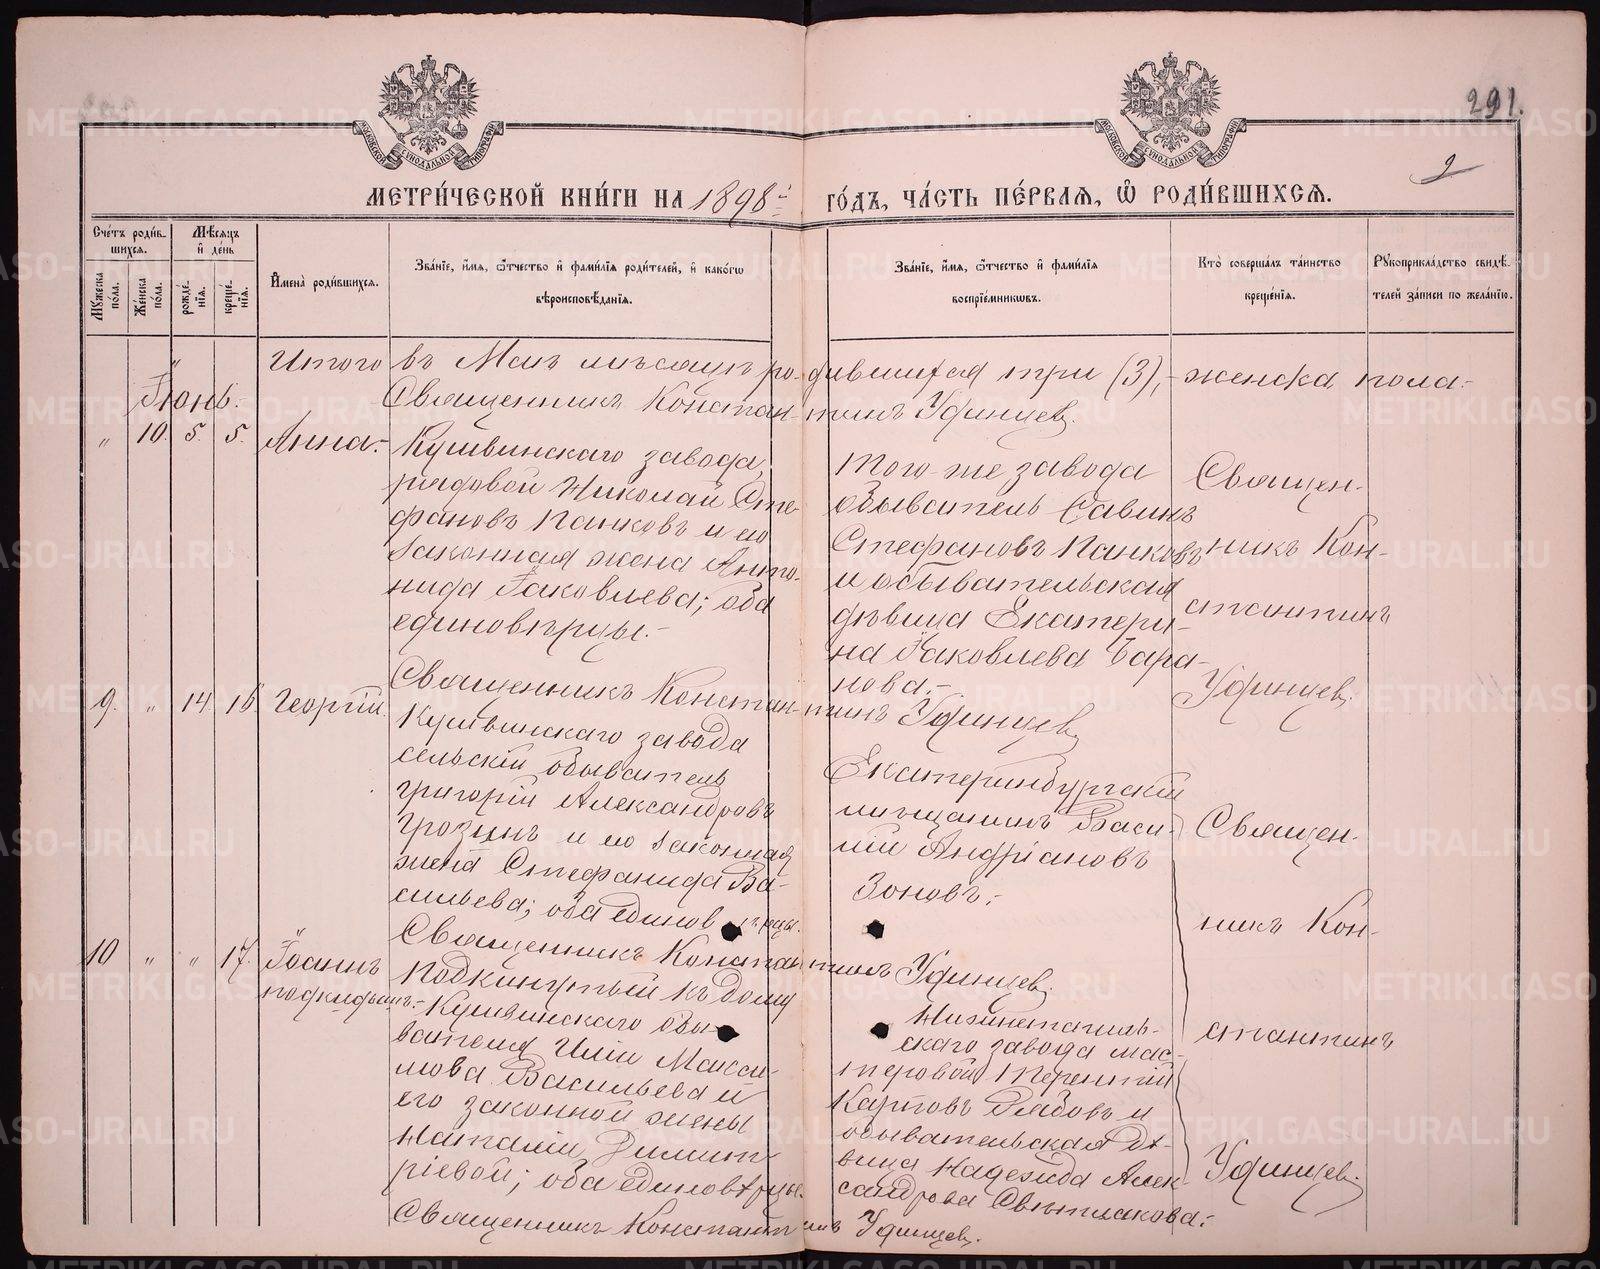 291.
2
МОСКОВСКОЙ СѴНОДАЛЬНОЙ ТИПОГРАФІИ
МОСКОВСКОЙ СѴНОДАЛЬНОЙ ТИПОГРАФІИ
МЕТРИ́ЧЕСКОЙ КНИ́ГИ НА 1898й ГО́ДЪ, ЧА́СТЬ ПЕ́РВАЯ, Ѽ РОДИ́ВШИХСЯ.
Сче́тъ роди́в-
шихся.
Мѣсяцъ
и҆ де́нь
Мꙋжеска по́ла.
Же́нска по́ла.
рожде́-
нїя.
креще́-
нїя.
И҆мена̀ роди́вшихся.
Зва́нїе, и҆́мя, ѻ҆́тчество и҆ фами́лїя роди́телей, и҆ како́гѡ
вѣроисповѣ́данїя.
Зва́нїе, и҆́мя, ѻ҆́тчество и҆ фами́лїя
воспрїе́мникѡвъ.
Кто̀ соверша́лъ та́инство
креще́нїя.
Рꙋкоприкла́дство свидѣ́-
телей за́писи по жела́нїю.
Итого въ Маѣ мѣсяцѣ ро-дившихся три (3),- женска пола.-
Іюнь.
Священникъ Констан-тинъ Удинцев.
„ 10. 5. 5. Анна.-
Кушвинскаго завода,
рядовой Николай Сте-
фановъ Панковъ и его
законная жена Анто-
нида Іаковлева; оба
единовѣрцы.-
Того-же завода
обыватель Савинъ
Стефановъ Панковъ
и обывательская
дѣвица Екатери-
на Іаковлева Бара-
нова.-
Священ-
никъ Кон-
стантинъ
Удинцев.
Священникъ Констан-тинъ Удинцев
9. „ 14. 16. Георгій
Кушвинскаго завода
сельскій обыватель
Григорій Александровъ
Грозинъ и его законная
жена Стефанида Ва-
сильева; оба единовѣрцы.
Екатеринбургскій
мѣщанинъ Васи-
лій Андріановъ
Зоновъ.-
Священ-
никъ Кон-
стантинъ
Удинцев.
Священникъ Константинъ Удинцев.
10 „ „ 17. Іоаннъ
подкидышъ.-
Подкинутый къ дому
Кушвинскаго обы-
вателя Иліи Макси-
мова Васильева и
его законной жены
Наталіи Димит-
ріевой; оба единовѣрцы.
Нижнетагиль-
скаго завода мас-
теровой Терентій
Карповъ Рябовъ и
обывательская дѣ-
вица Надежда Алек-
сандрова Свѣтлакова.-
Священникъ Константинъ Удинцев.